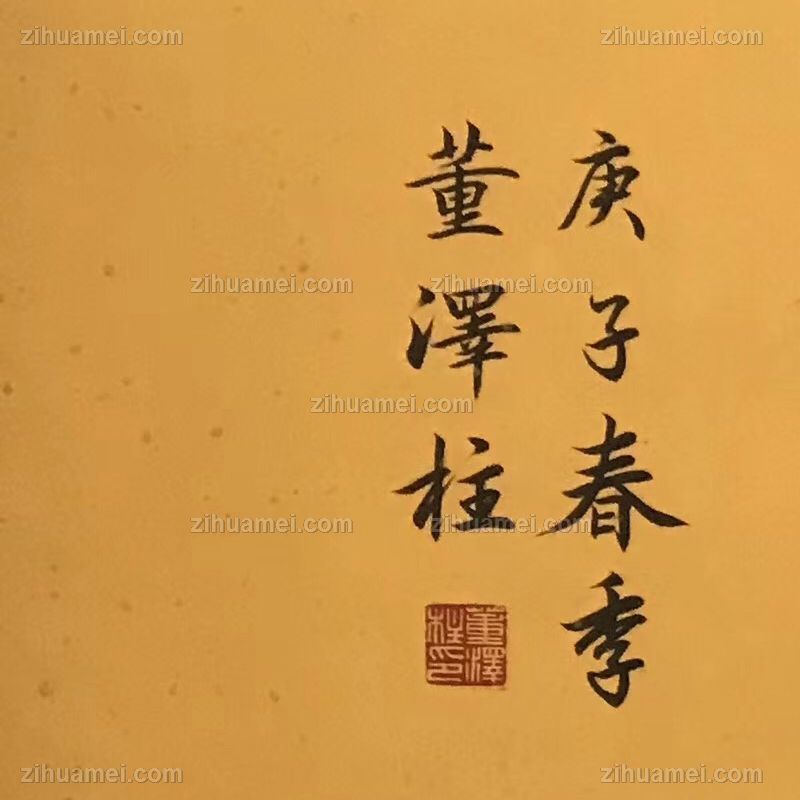 庚子春季
董澤柱
董澤柱印
zihuamei.com
zihuamei.com
zihuamei.com
zihuamei.com
zihuamei.com
zihuamei.com
zihuamei.com
zihuamei.com
zihuamei.com